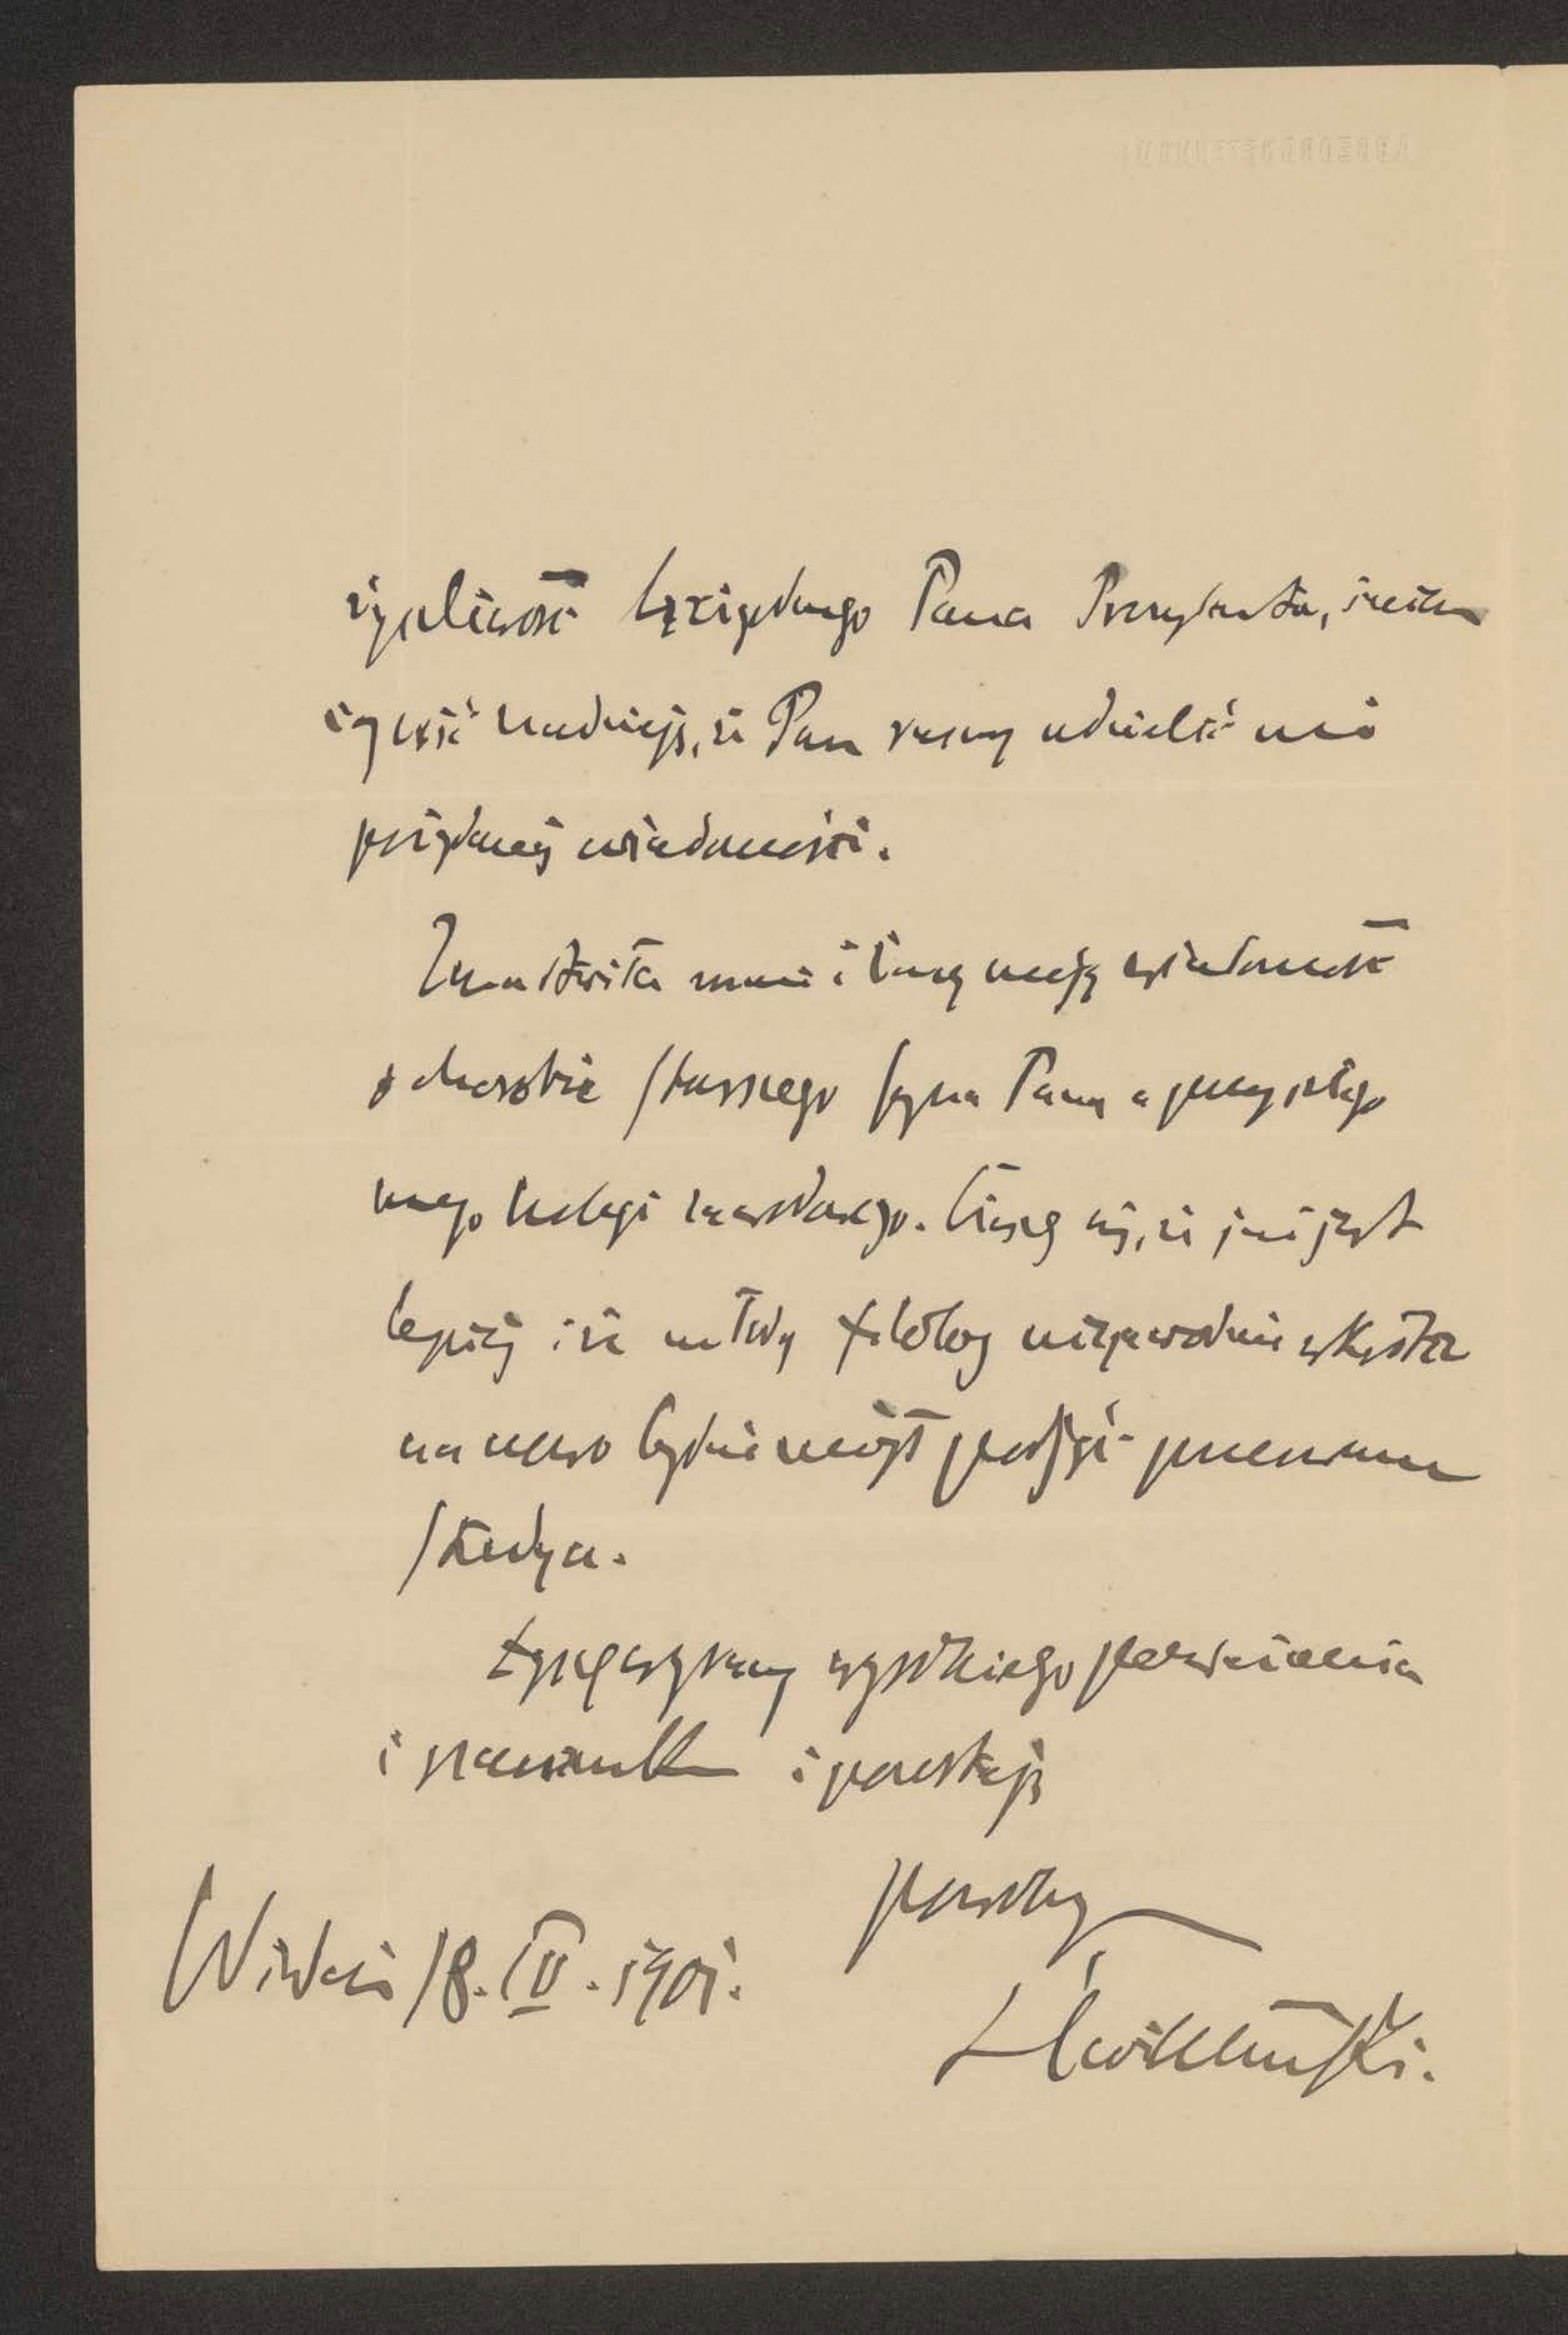 życzliwość Czcigodnego Pana Prezydenta, śmiem
żywić nadzieję, że Pan raczy udzielić mi
pożądanej wiadomości.
Zmartwiła mnie i żonę moją wiadomość
o chorobie starszego syna Pana a przyszłego
mego kolegi zawodowego. Cieszę się, że już jest
lepiej i że młody filolog niezawodnie wkrótce
na nowo będzie mógł podjąć przerwane
studya.
Łączę wyrazy wysokiego poważania
i szacunku i pozostaję
powolny
Wiedeń 18. IV. 1901.
Ćwikliński.